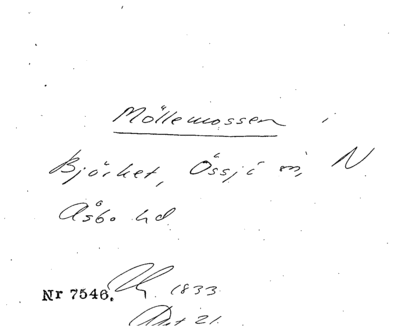 Möllemossen i
Björket, Össjö sn, N.
Åsbo hd.
Nr 7546. 1833
21.